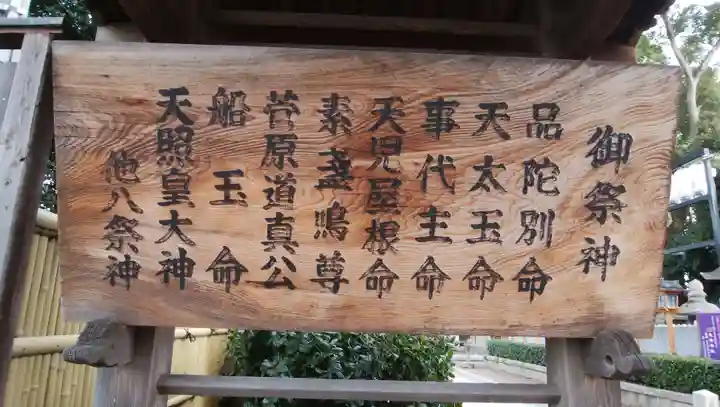 御祭神
品陀別命
天太玉命
事代主命
天児屋根命
素盞嗚尊
菅原道真公
船玉命
天照皇大神
他八祭神